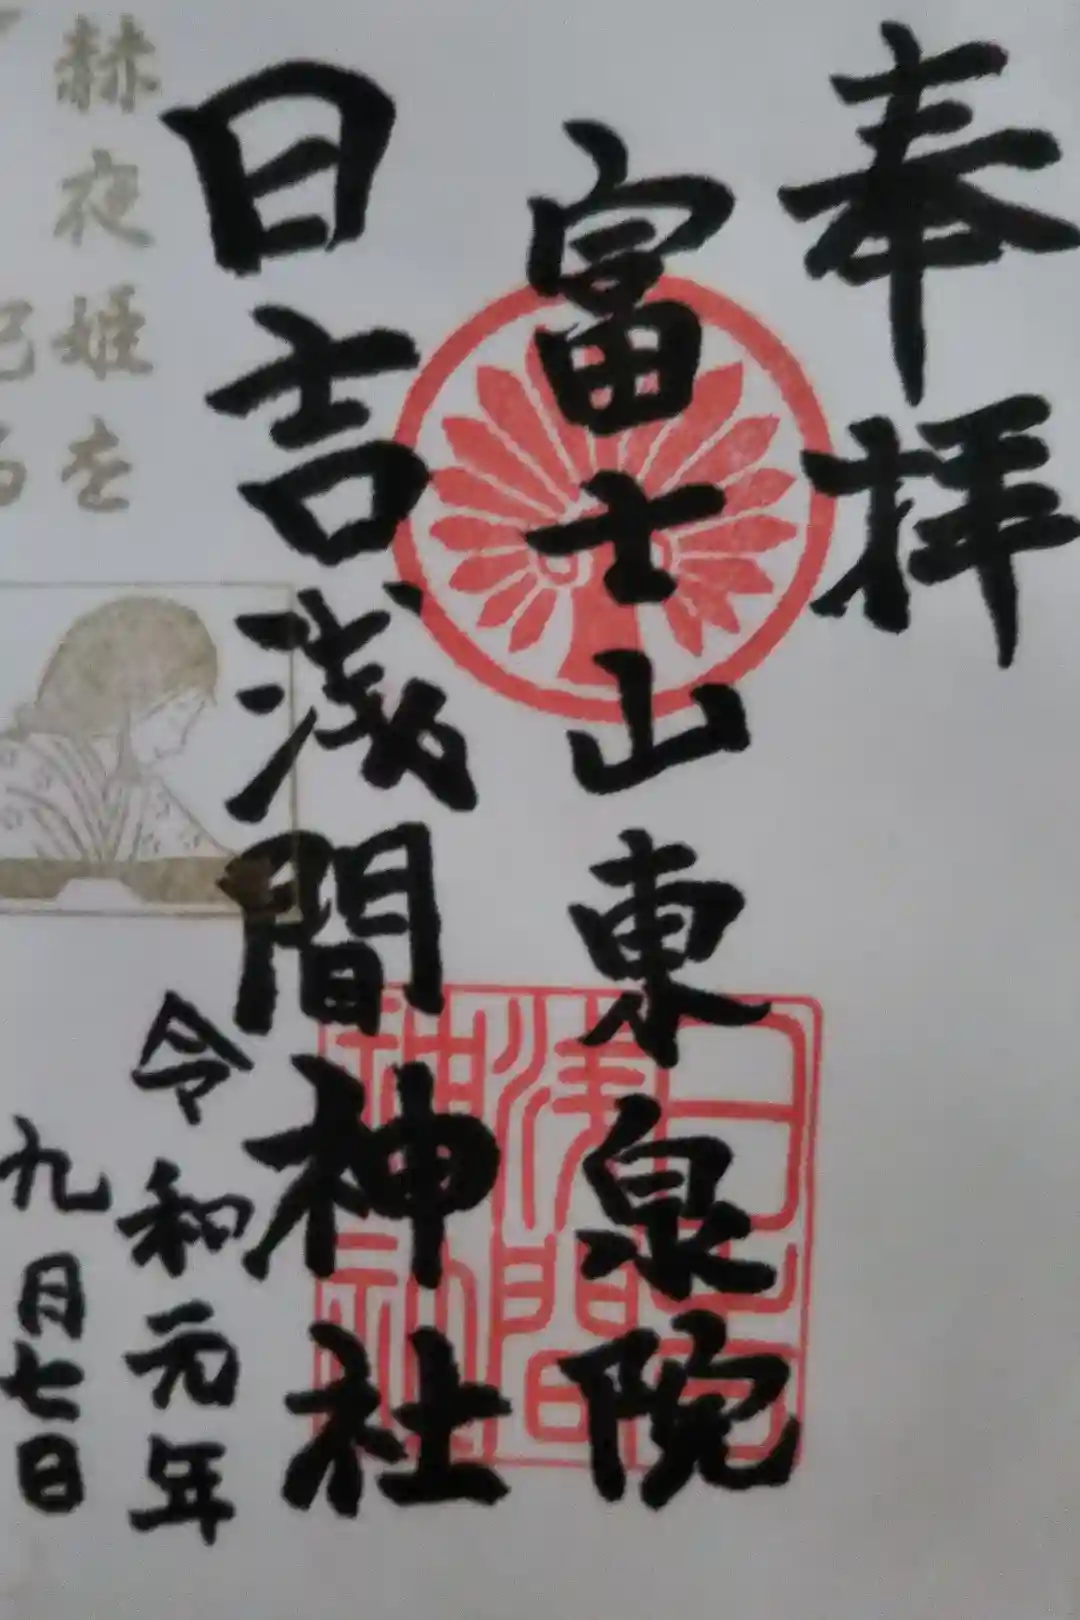 奉拝
富士山東泉院
日吉浅間神社
令和元年
九月七日
赫夜姫を
日吉
浅間
神社